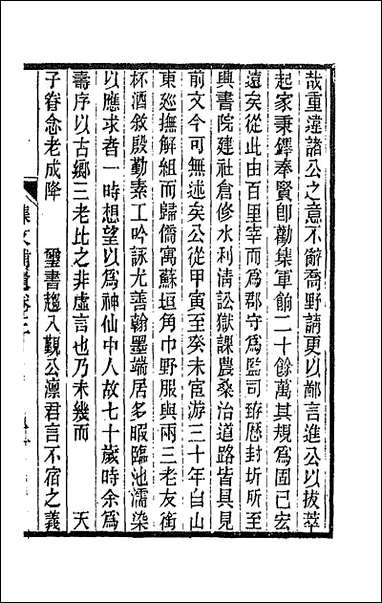 哉重違諸公之意不辭喬野請更以鄙言進公以拔萃
起家秉鐸奉賢卽勸集軍餉二十餘萬其規爲固已宏
遠矣從此由百里宰而爲郡守爲監司晉歷封圻所至
興書院建社倉修水利清訟獄課農桑治道路皆具見
前文今可無述矣公從甲寅至癸未宦游三十年自山
東廵撫解組而歸僑寓蘇垣角巾野服與兩三老友銜
杯酒敘殷勤素工吟詠尤善翰墨端居多暇臨池濡染
以應求者一時想望以爲神仙中人故七十歲時余爲
壽序以古鄉三老比之非虛言也乃未幾而　　　天
子眷念老成降　　　璽書趨入覲公凜君言不宿之義